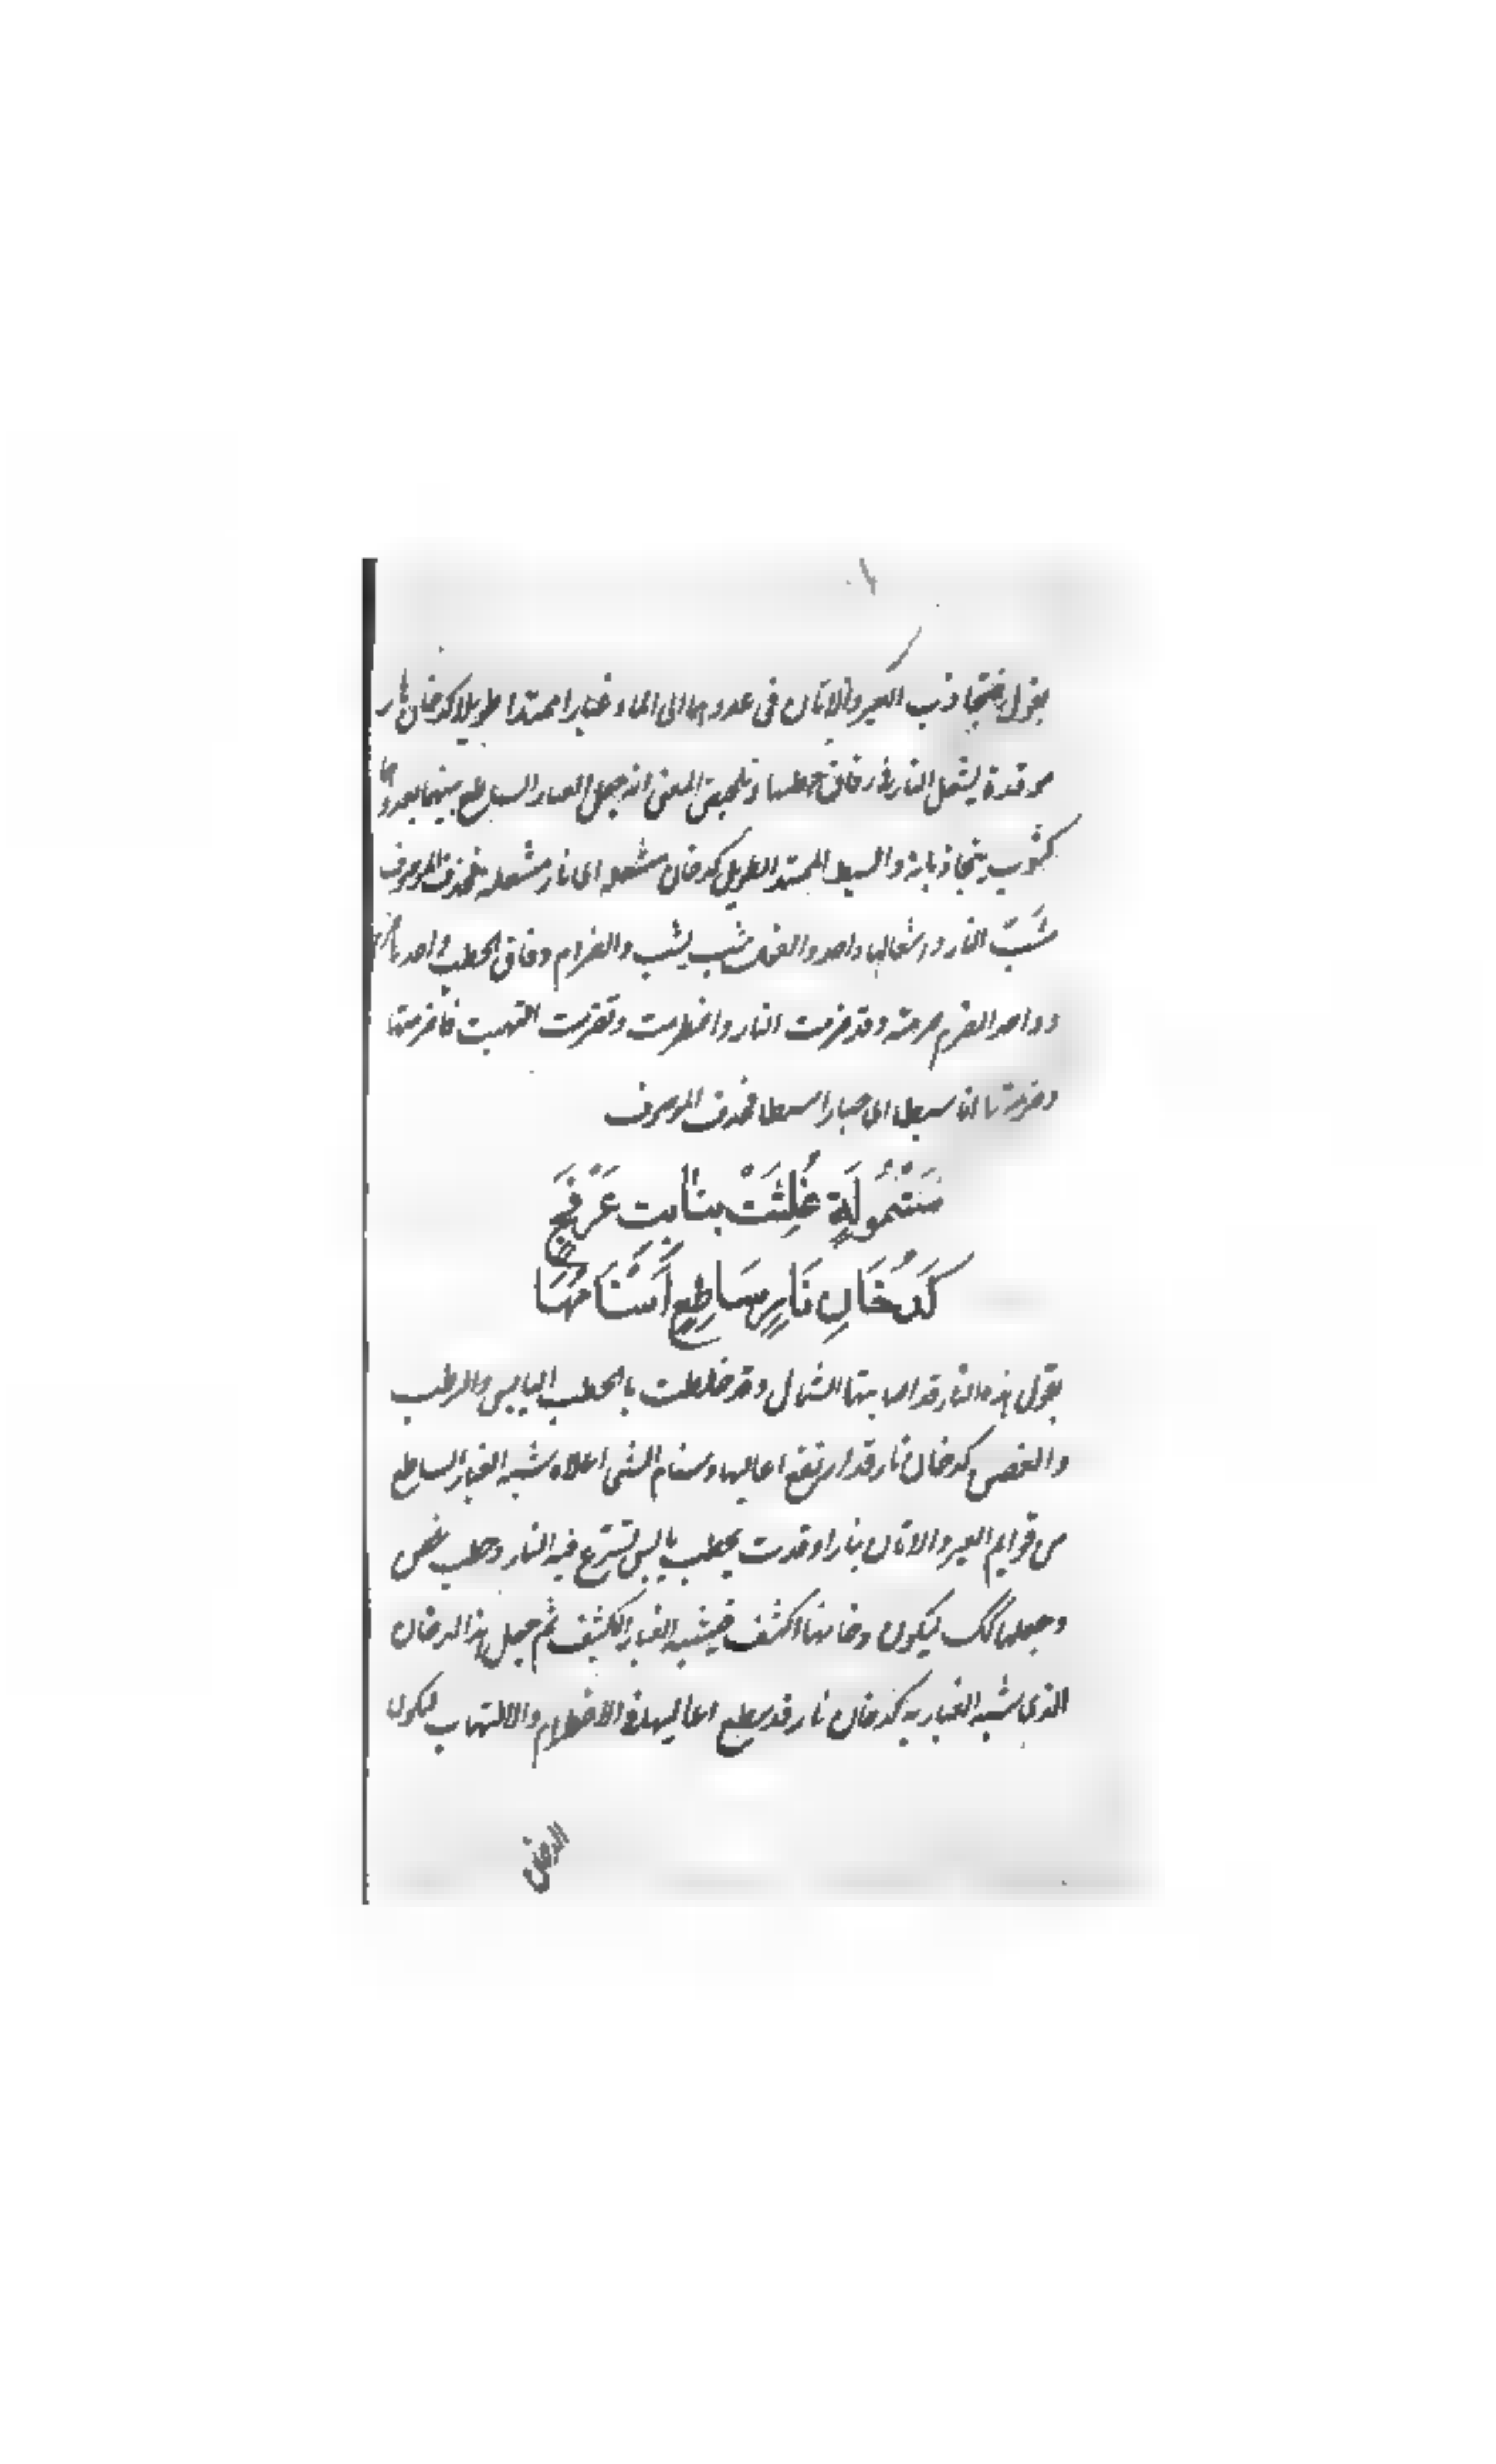 يقول فتجاذب العير والاتان فى عدوهما الى الماء غبارا ممتدا طويلا كدخان نار
موقدة يشعل النار فى دقاق حطبها وتلخيص المعنى انه جعل الغبار الساطع بينهما بعدوهما
كثوب يتجاذبانه والسبط الممتد الطويل كدخان مشعلة اى نار مشعلة فحذف الموصوف
شَبّ النار واشعالها واحد والفعل شب يشب والضرام دقاق الحطب واحدها
وواحد الضرم ضرمة وقد ضرمت النار واضطرمت وتضرمت التهبت فاضرمتها
وضرمتها انا سبطا اى غبارا سبطا فحذف الموصوف
مَشْمُولَةٍ غُلِثَتْ بِنَابِتِ عَرْفَجٍ
كَدُخَانِ نَارٍ سَاطِعٍ أَسْنَامُهَا
يقول هذه النار قد اصابتها الشمال وقد خلطت بالحطب اليابس والرطب
والغض كدخان نار قد ارتفع اعاليها وسنام الشئ اعلاه شبه الغبار الساطع
من قوايم العير والاتان بنار اوقدت بحطب يابس تسرع فيه النار وحطب غض
وجعلها كك ليكون دخانها اكثف فيشبه الغبار الكثيف ثم جعل هذا الدخان
الذى شبه الغبار به كدخان نار قد سطع اعاليها فى الاضطرام والالتهاب ليكون
الدخان